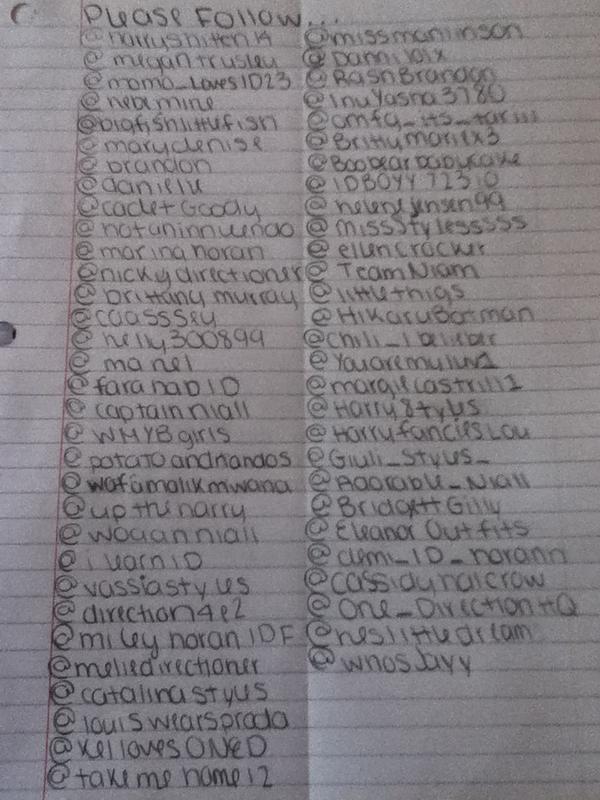 Please Follow...
@harryshiten14
@megantrusley
@moma_Loves1D23
@nebemine
@bigfishlittlefish
@marydenise
@brandon
@danielle
@cadetGoody
@notaninnuendo
@marinahoran
@nickydirectioner
@brittany murray
@caasssey
@helly300899
@manel
@farahab1D
@captainniall
@WMYBgirls
@potatoandnandos
@wafamalikmwana
@uptheharry
@woahhniall
@ilearn1D
@vassiastyles
@direction4e2
@mileyhoran1DF
@meliedirectioner
@catalinastyles
@louiswearsprada
@KellovesONED
@takemehome12
@missmanlinson
@Danniloix
@RashBrandon
@InuYasha3780
@omfg_its_tariii
@Brittymariex3
@Boobearbabycake
@1DBOYY72310
@helenejensen99
@missstylesssss
@ellencrocker
@TeamNiam
@littlethigs
@HikaruBatman
@chili_1belieber
@Youaremyluv1
@margiecastrill1
@Harry8tyles
@HarryfanciesLou
@Giuli_Styles_
@Adorable_Niall
@BridgettGilly
@EleanorOutfits
@demi_1D_horann
@cassidyhalcrow
@One_DirectionHQ
@heslittledream
@whosJayy